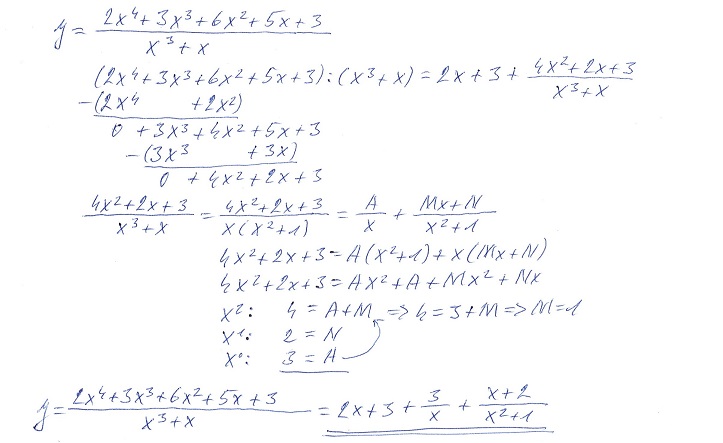 y = (2x⁴+3x³+6x²+5x+3)/(x³+x)
(2x⁴+3x³+6x²+5x+3):(x³+x) = 2x+3+(4x²+2x+3)/(x³+x)
-(2x⁴ +2x²)
0 +3x³+4x²+5x+3
-(3x³ +3x)
0 +4x²+2x+3
(4x²+2x+3)/(x³+x) = (4x²+2x+3)/(x(x²+1)) = A/x + (Mx+N)/(x²+1)
4x²+2x+3=A(x²+1)+x(Mx+N)
4x²+2x+3=Ax²+A+Mx²+Nx
x²: 4=A+M => 4=3+M => M=1
x¹: 2=N
x⁰: 3=A
y = (2x⁴+3x³+6x²+5x+3)/(x³+x) = 2x+3+3/x+(x+2)/(x²+1)